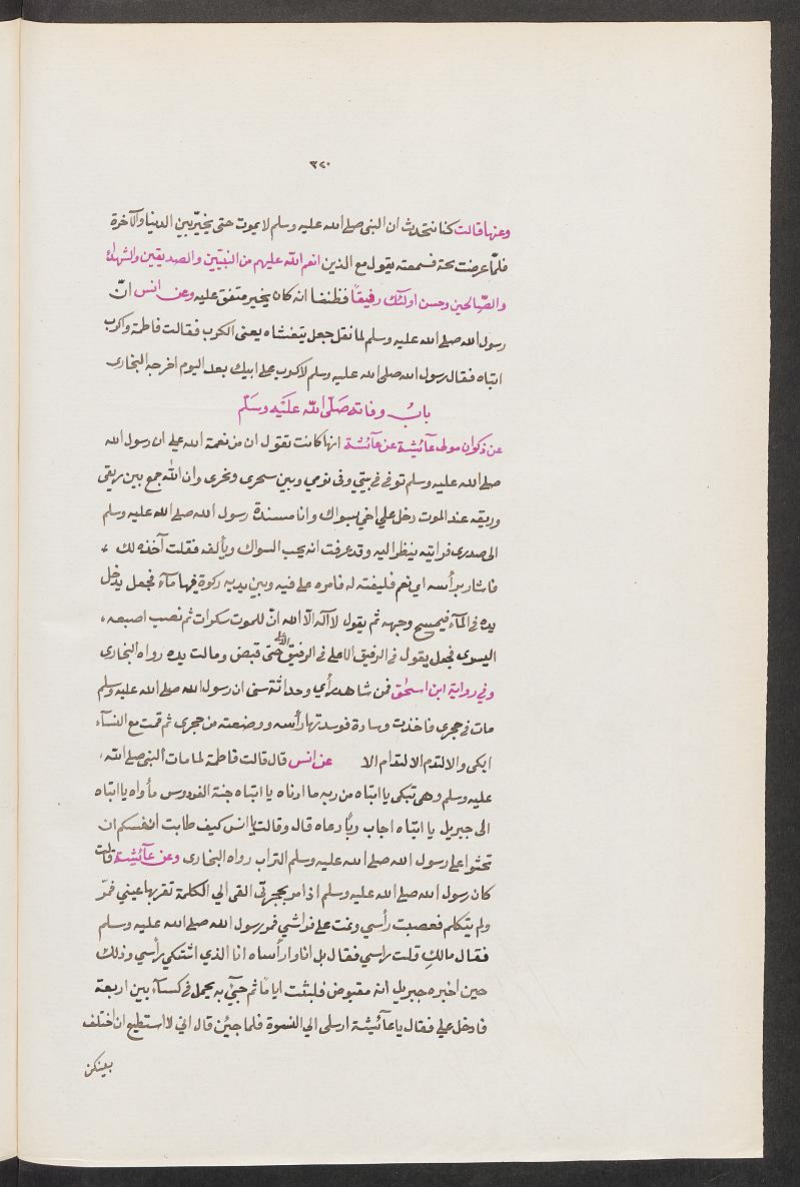 ٣٧٠
وعنها قالت كنا نتحدث ان النبى صلى الله عليه وسلم لا يموت حتى يخيّر بين الدنيا والآخرة
فلمّا عرضت بحة فسمعته يقول مع الذين انعم الله عليهم من النبيّين والصديقين والشهداء
والصّالحين وحسن اولئك رفيقًا فظننا انه كان يخير متفق عليه وعن انس انّ
رسول الله صلى الله عليه وسلم لما ثقل جعل يتغشاه يعنى الكرب فقالت فاطمة واكرب
ابتاه فقال رسول الله صلى الله عليه وسلم لا كرب على ابيك بعد اليوم اخرجه البخارى
بابُ وفاته صَلّى الله عَلَيْه وسَلّم
عن ذكوان مولى عآئيشة عن عآئشة انها كانت تقول ان من نعمة الله على ان رسول الله
صلى الله عليه وسلم توفى فى بيتي وفى نومي وبين سحرى ونحرى وان الله جمع بين ريقى
وريقه عند الموت دخل علي اخي بسواك وانا مسندة رسول الله صلى الله عليه وسلم
الى صدرى فرايته ينظر اليه وقد عرفت انه يحب السواك ويألف فقلت آخذه لك
فاشار برأسه اي نعم فلينته له فامره على فيه وبين يديه ركوة فيها مآء فجعل يدخل
يده فى المآء فيمسح وجهه ثم يقول لا آله الّا الله انّ للموت سكرات ثم نصب اصبعه
اليسرى فجعل يقول فى الرفيق الاعلى فى الرفيق الاعلى حتى قبض ومالت يده رواه البخارى
وفى رواية ابن اسحٰق فمن شاهد رأي وحداثة سنى ان رسول الله صلى الله عليه وسلم
مات فى حجرى فاخذت وسادة فوسدتها رأسه ووضعته من حجرى ثم قمت مع النسآء
ابكى والالتدم الالتدام الا عن انس قال قالت فاطمة لما مات النبى صلى الله
عليه وسلم وهى تبكى يا ابتاه من ربه ما ادناه يا ابتاه جنة الفردوس مأواه يا ابتاه
الى جبريل يا ابتاه اجاب ربًا دعاه قال وقالت يا انس كيف طابت انفسكم ان
تحثوا على رسول الله صلى الله عليه وسلم التراب رواه البخارى وعن عآئيشة قالت
كان رسول الله صلى الله عليه وسلم اذا مر بحجرتى القى الي الكلمة تقربها عيني فمرّ
ولم يتكلم فعصبت رأسي ونمت على فراشي فمر رسول الله صلى الله عليه وسلم
فقال مالكِ قلت راسي فقال بل انا وارأساه انا الذي اشتكي رأسي وذلك
حين اخبره جبريل انه مقبوض فلبثت ايامًا ثم جئ به يحمل فى كسآء بين اربعة
فادخل علي فقال يا عآئيشة ارسلى الي النسوة فلما جئن قال اني لا استطيع ان اختلف
بينكن